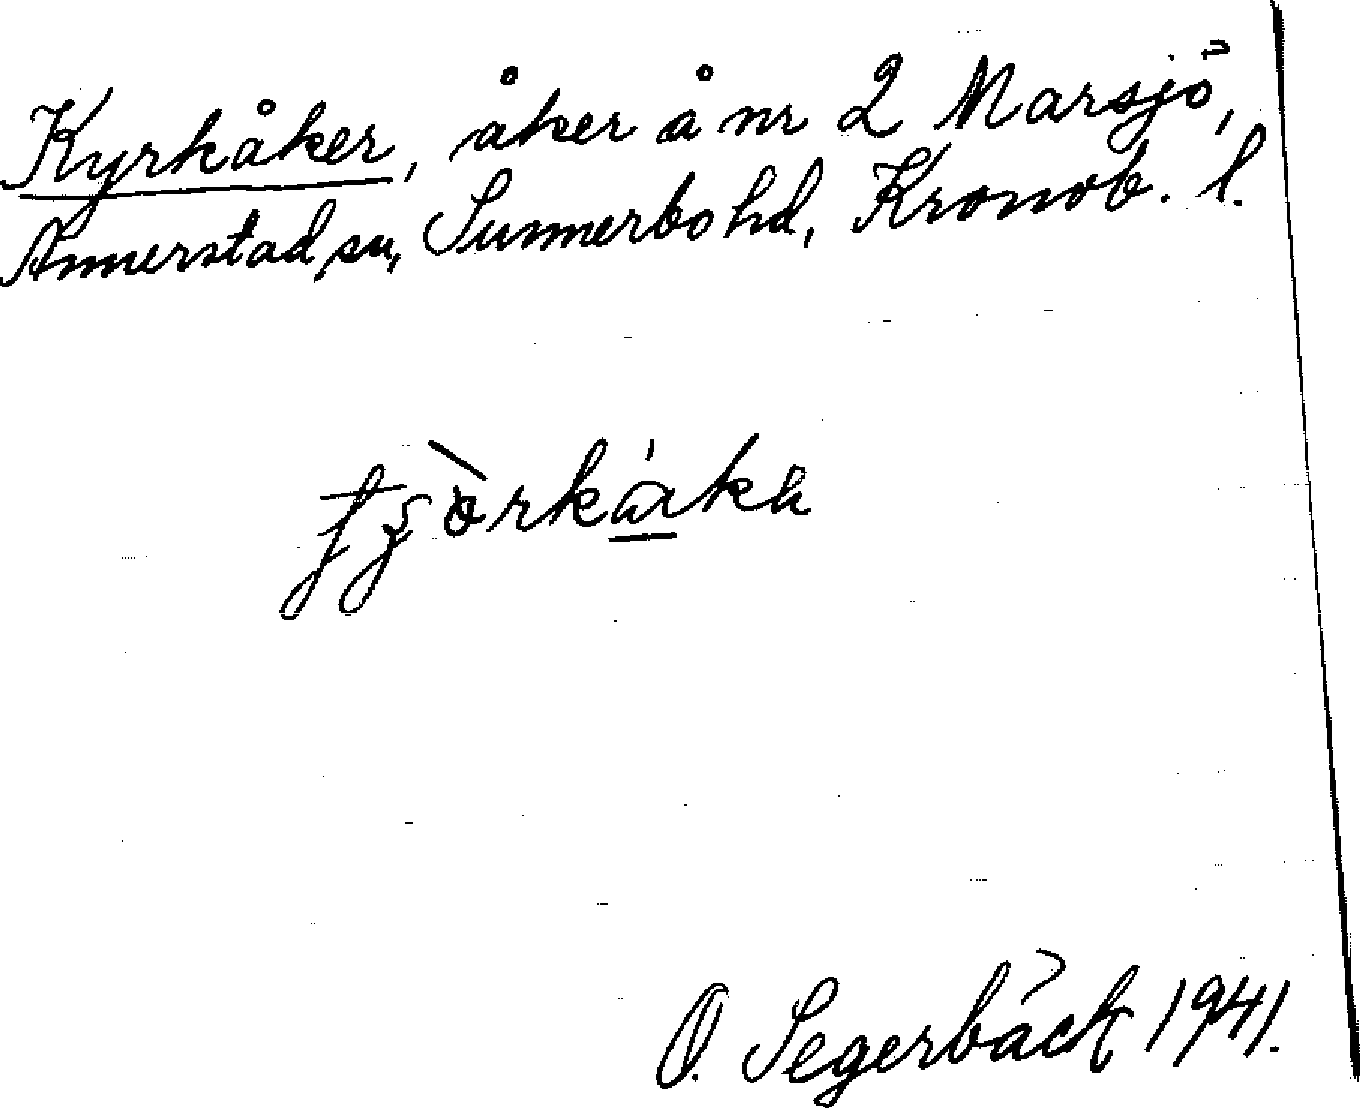 Kyrkåker, åker å nr 2 Marsjö,
Annerstad sn, Sunnerbo hd, Kronob. l.
O. Segerbäck 1941.